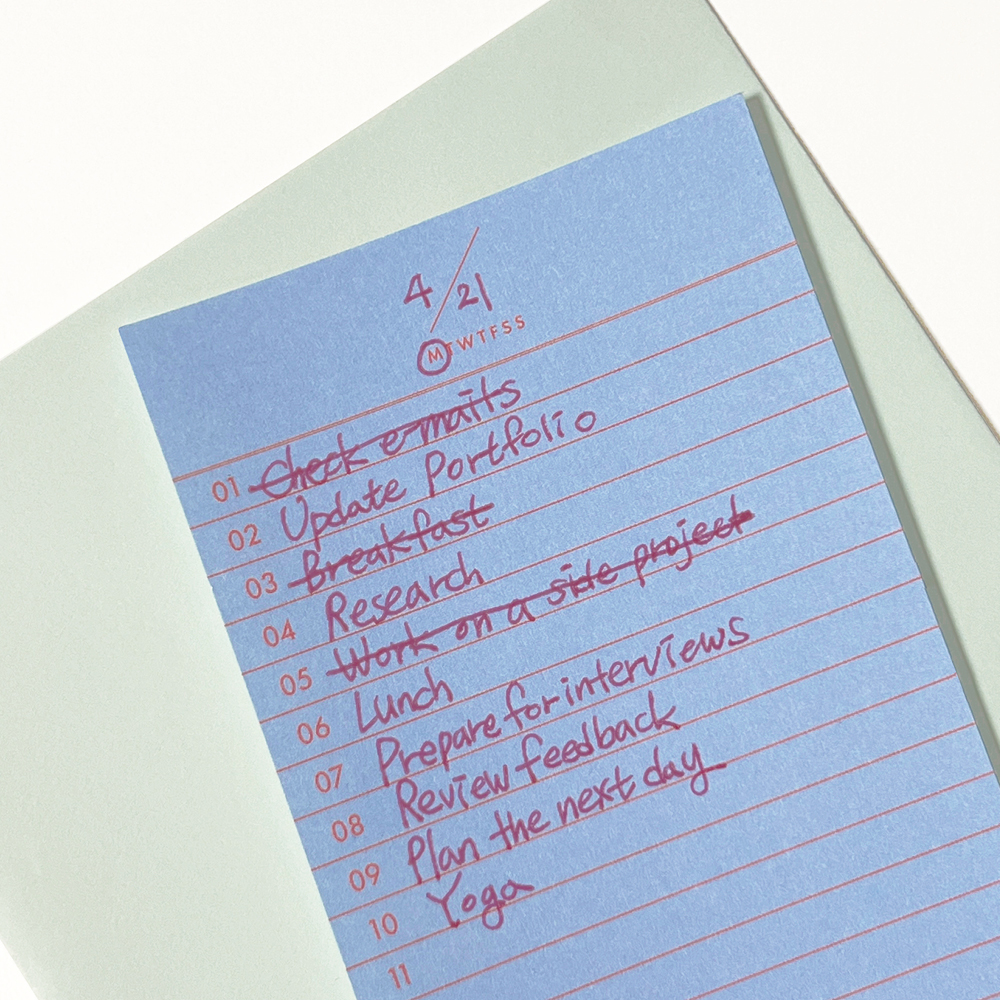 4/21
MTWTFSS
01 Check e-mails
02 Update Portfolio
03 Breakfast
04 Research
05 Work on a side project
06 Lunch
07 Prepare for interviews
08 Review feedback
09 Plan the next day
10 Yoga
11